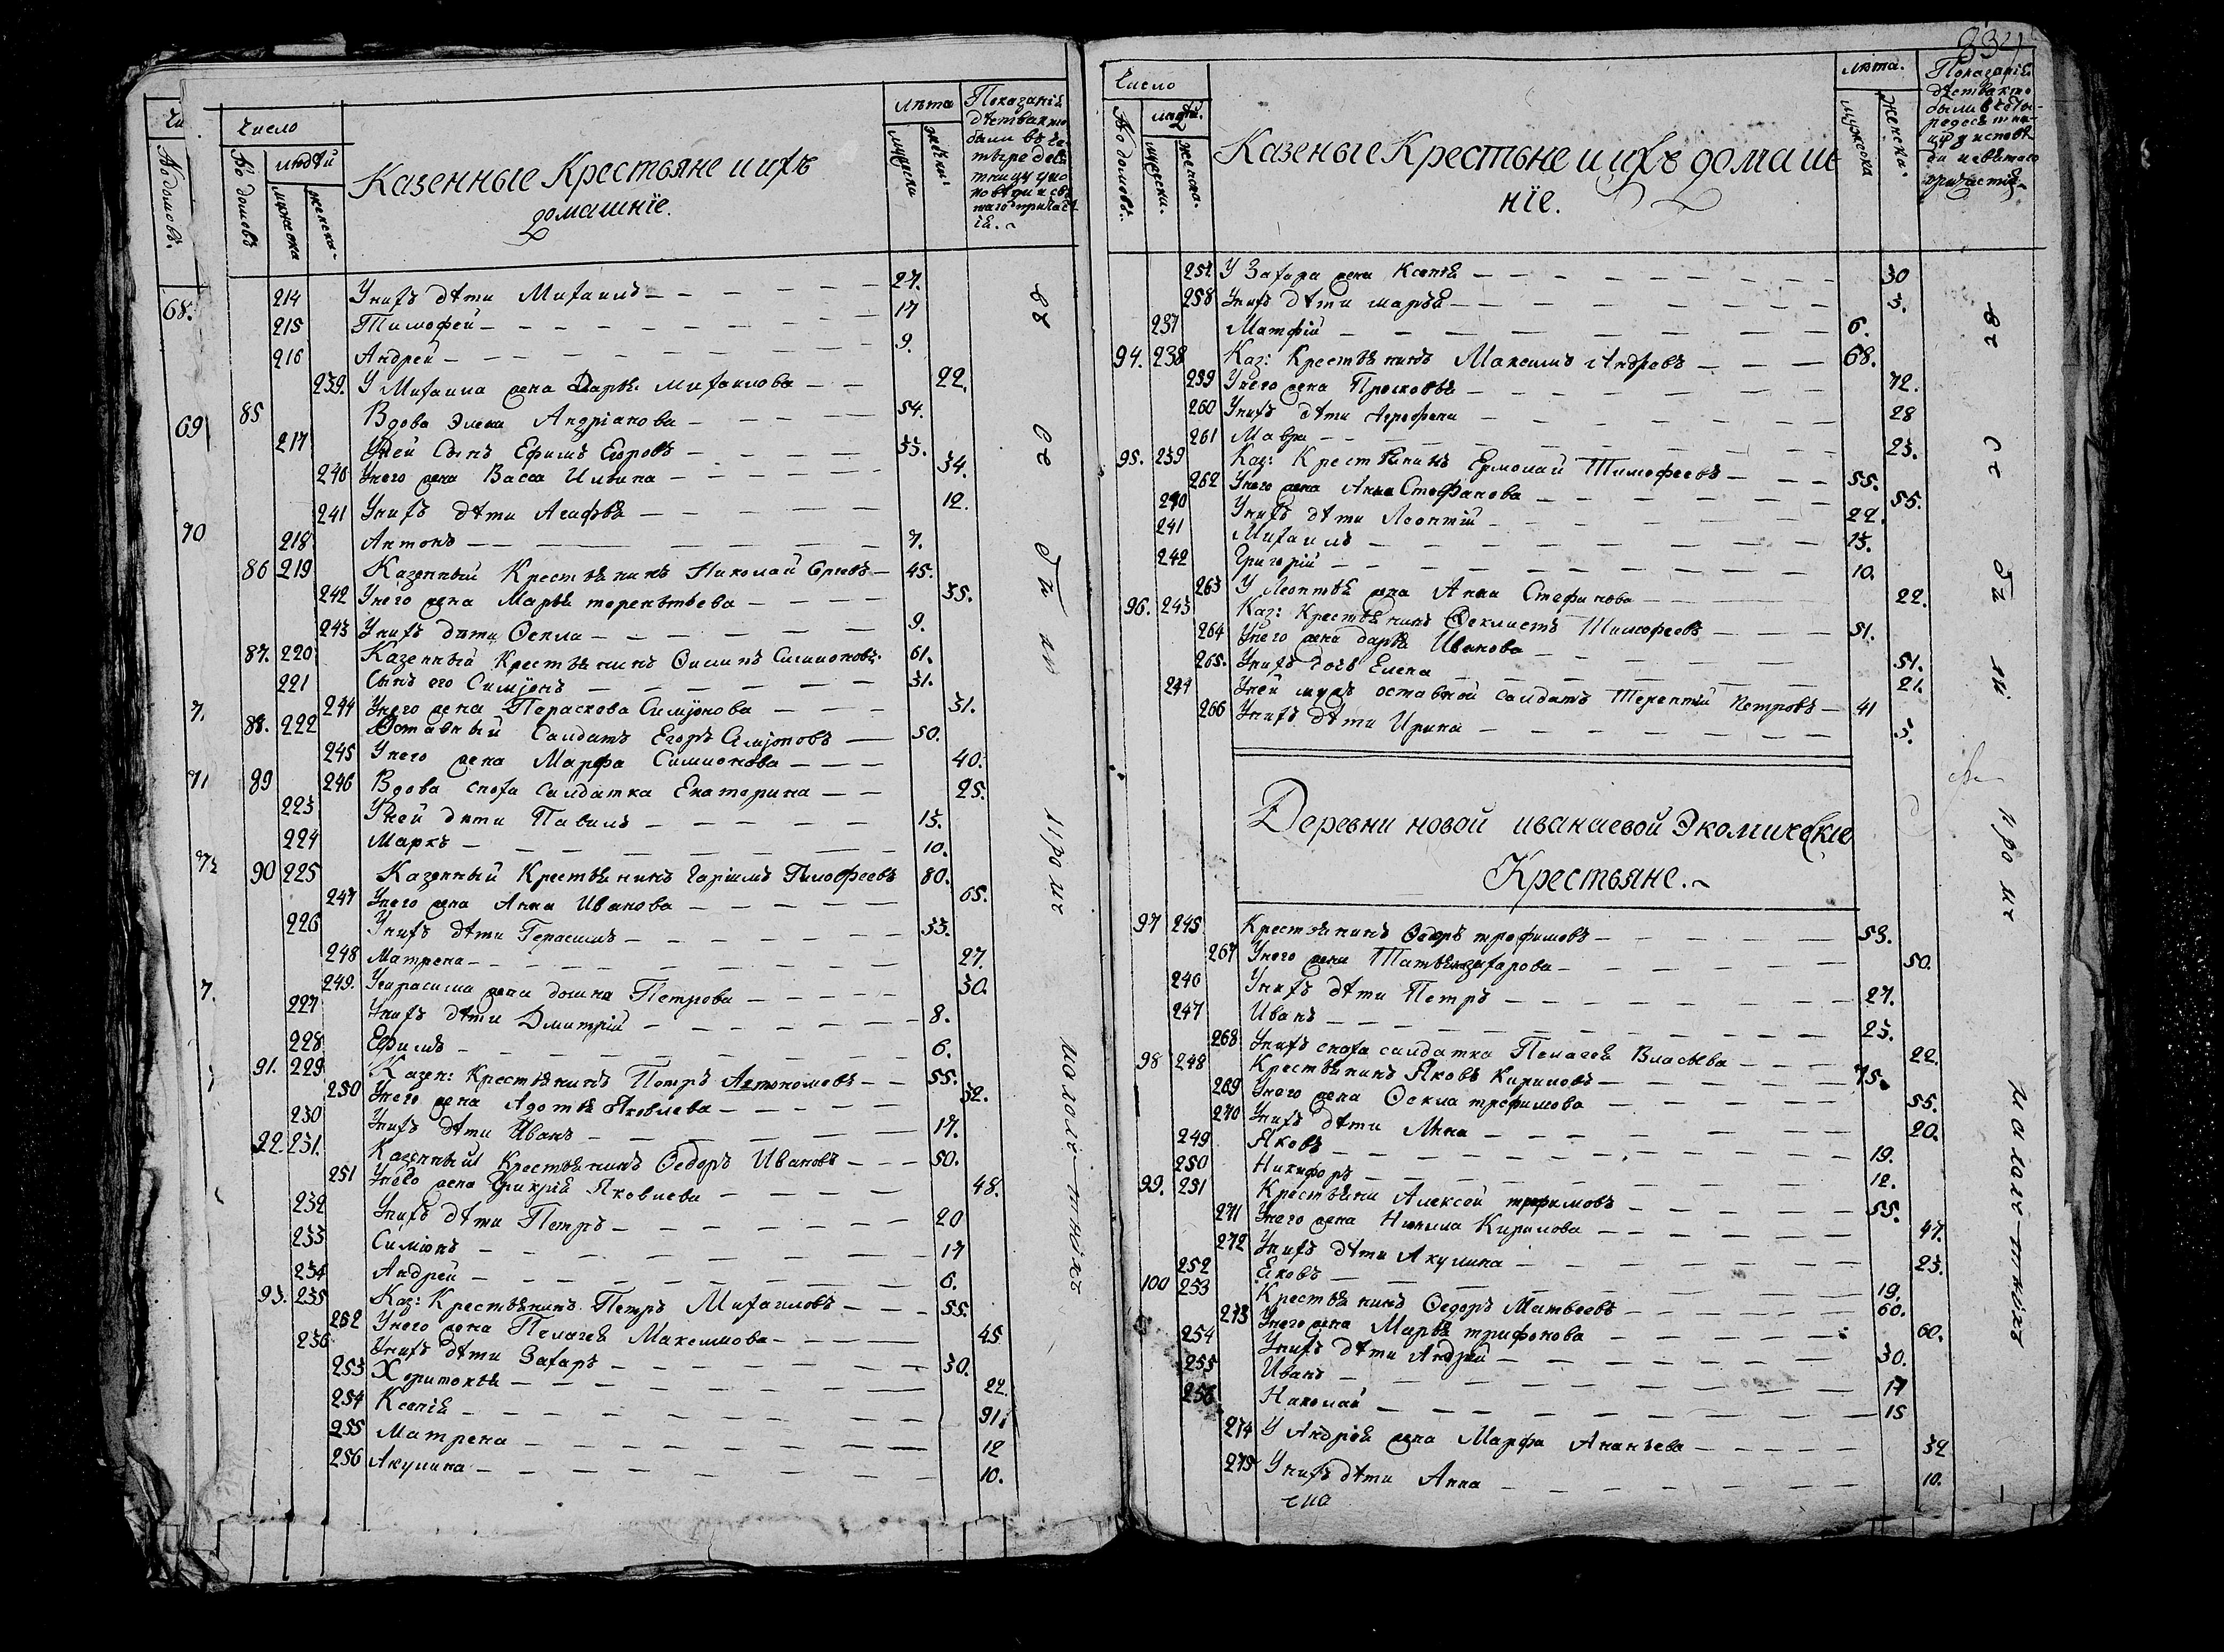 Число
По домовъ
людей
мужеска
женска
Казенные Крестьяне и ихъ
домашнїе.
лѣта
мужеска
женска
68.
214 У нихъ дѣти Михаилъ 27.
215 Тимофей 17
216 Андрей 9.
239. У Михаила жена Дарья михаилова 22.
69
85 Вдова Элена Андрiанова 54.
217 У ней Сынъ Ефимъ Егоровъ 33.
240 У него жена Васса Ильина 34.
241 У нихъ дѣти Агафья 12.
70
218 Антонъ 7.
86 219 Казенный Крестьянинъ Николай 45.
242 У него жена Марья терентьева 35.
243 У нихъ дѣти Ѳекла 9.
87. 220 Казенный Крестьянинъ Симионовъ 61.
221 Сынъ его Симiонъ 31.
244 У него жена Параскова Симiонова 31.
88. 222 Отставный Салдатъ Егоръ Симiоновъ 50.
245 У него жена Марфа Симионова 40.
71 89 246 Вдова сноха салдатка Екатерина 25.
223 У ней дѣти Павилъ 13.
224 Маркъ 10.
90 225 Казенный Крестьянинъ Тимофеевъ 80.
247 У него жена Анна Иванова 65.
226 У нихъ дѣти Герасимъ 33.
248 Матрена 27.
249. У гарасима жена домна Петрова 30.
227 У нихъ дѣти Дмитрїй 8.
228 Ефимъ 6.
91. 229 Казен: Крестьянинъ Петръ Автономовъ 55.
250 У него жена Адотья Яковлева 52.
230 У нихъ дѣти Иванъ 17.
92. 231. Казенный Крестьянинъ Ѳедоръ Ивановъ 50.
251 У него жена Яковлева 48.
232 У нихъ дѣти Петръ 20
233 Симїонъ 17
234 Андрей 6.
93. 235 Каз: Крестьянинъ Петръ Михаиловъ 55.
252 У него жена Пелагея Максимова 45
236 У нихъ дѣти Захаръ 30.
253 Харитонья 22.
254 Ксенїя 91.
255 Матрена 12
256 Акулина 10.
Всѣ были
при
малолѣтныхъ
834
Число
По домовъ.
людей.
мужеска.
женска.
Казеные Крестьне и ихъ домаш
нїе.
лѣта.
мужеска
женска.
257 У Захара жена Ксенїя 30
258 У нихъ дѣти марья 3.
237 Матфїй 6.
94. 238 Каз: Крестьянинъ Максимъ Андреевъ 68.
259 У него жена Прасковья 72.
260 У нихъ дѣти Агрофена 28
261 Мавра 23.
95. 239 Каз: Крестьянинъ Ермолай Тимофеевъ 55.
262 У него жена Анна Стефанова 55.
240 У нихъ дѣти Леонтїй 22.
241 Михаилъ 13.
242 Григорїй 10.
263 У Леонтья жена Анна Стефанова 22.
96. 243 Каз: Крестьянинъ Ѳеклистъ Тимофеевъ 51.
264 У него жена дарья Иванова 51.
265. У нихъ дочь Елена 21.
244 У ней мужъ оставной салдатъ Терентїй Петровъ 41
266 У нихъ дѣти Ирина 3.
Деревни новой иванаевой Экомическїе
Крестьяне.
97 245 Крестьянинъ Ѳедоръ трофимовъ 53.
267 У него жена Татьяна захарова 50.
246 У нихъ дѣти Петръ 27.
247 Иванъ 23.
268 У нихъ сноха салдатка Пелагея Власьева 22.
98 248 Крестьянинъ Яковъ Кириловъ 75.
269 У него жена Ѳекла трофимова 55.
270 У нихъ дѣти Анна 20.
249 Яковъ 19.
250 Никифоръ 12.
99. 251 Крестьянинъ Алексей трофимовъ 55.
271 У него жена Кирилова 47.
272 У нихъ дѣти Акулина 23.
252 Яковъ 19.
100 253 Крестьянинъ Ѳедоръ Матвеевъ 60.
273 У него жена Марья трифонова 60.
254 У нихъ дѣти Андрей 30.
255 Иванъ 17
256 Николай 15
274 У Андрея жена Марфа Ананьева 32
275 У нихъ дѣти Анна 10.
Всѣ были
при
малолѣтныхъ